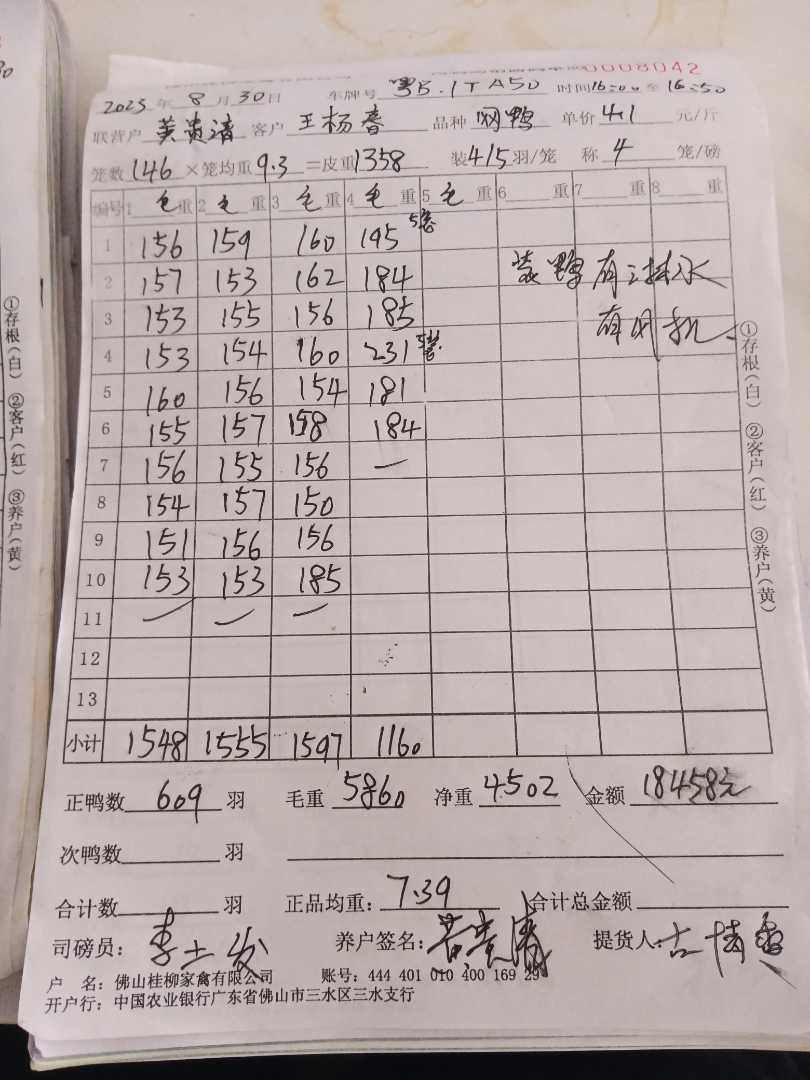 0008042
2025年8月30日 车牌号粤B.1TA50 时间16:00至16:50
联营户 黄贵清 客户 王杨春 品种 网鸭 单价 4.1 元/斤
笼数146×笼均重9.3=皮重1358 装4/5羽/笼 称4笼/磅
编号 1毛重 2毛重 3毛重 4毛重 5毛重 6重 7重 8重
1 156 159 160 195 5笼
2 157 153 162 184 装鸭有过抹水
3 153 155 156 185 有风机
4 153 154 160 231 5笼
5 160 156 154 181
6 155 157 158 184
7 156 155 156 —
8 154 157 150
9 151 156 156
10 153 153 185
11 — — —
12
13
小计 1548 1555 1597 1160
正鸭数 609 羽 毛重 5860 净重 4502 金额 18458元
次鸭数 羽
合计数 羽 正品均重：7.39 合计总金额
司磅员：李土发 养户签名：黄贵清 提货人：
户 名：佛山桂柳家禽有限公司 账号：444 401 010 400 169 29
开户行：中国农业银行广东省佛山市三水区三水支行
①存根(白) ②客户(红) ③养户(黄)
①存根(白) ②客户(红) ③养户(黄)